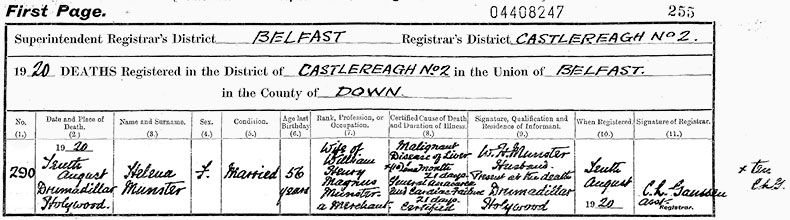 First Page.
04408247
255
Superintendent Registrar's District BELFAST Registrar's District CASTLEREAGH No 2.
1920 DEATHS Registered in the District of CASTLEREAGH No 2 in the Union of BELFAST.
in the County of DOWN.
No. (1.)
Date and Place of Death. (2.)
Name and Surname. (3.)
Sex. (4.)
Condition. (5.)
Age last Birthday (6.)
Rank, Profession, or Occupation. (7.)
Certified Cause of Death and Duration of Illness. (8.)
Signature, Qualification and Residence of Informant. (9.)
When Registered. (10.)
Signature of Registrar. (11.)
290
1920
Tenth
August
Drumadillar
Holywood
Helena
Munster
F.
Married
56
years
Wife of
William
Henry
Magnus
Munster
a Merchant
Malignant
Disease of Liver
month
21 days.
General Anasarca
and Cardiac Failure
21 days.
Certified
W. H. Munster
Husband
Present at the death
Drumadillar
Holywood
Tenth
August
1920
C. L. Gaussen
asst. Registrar.
x ten
C.L.G.